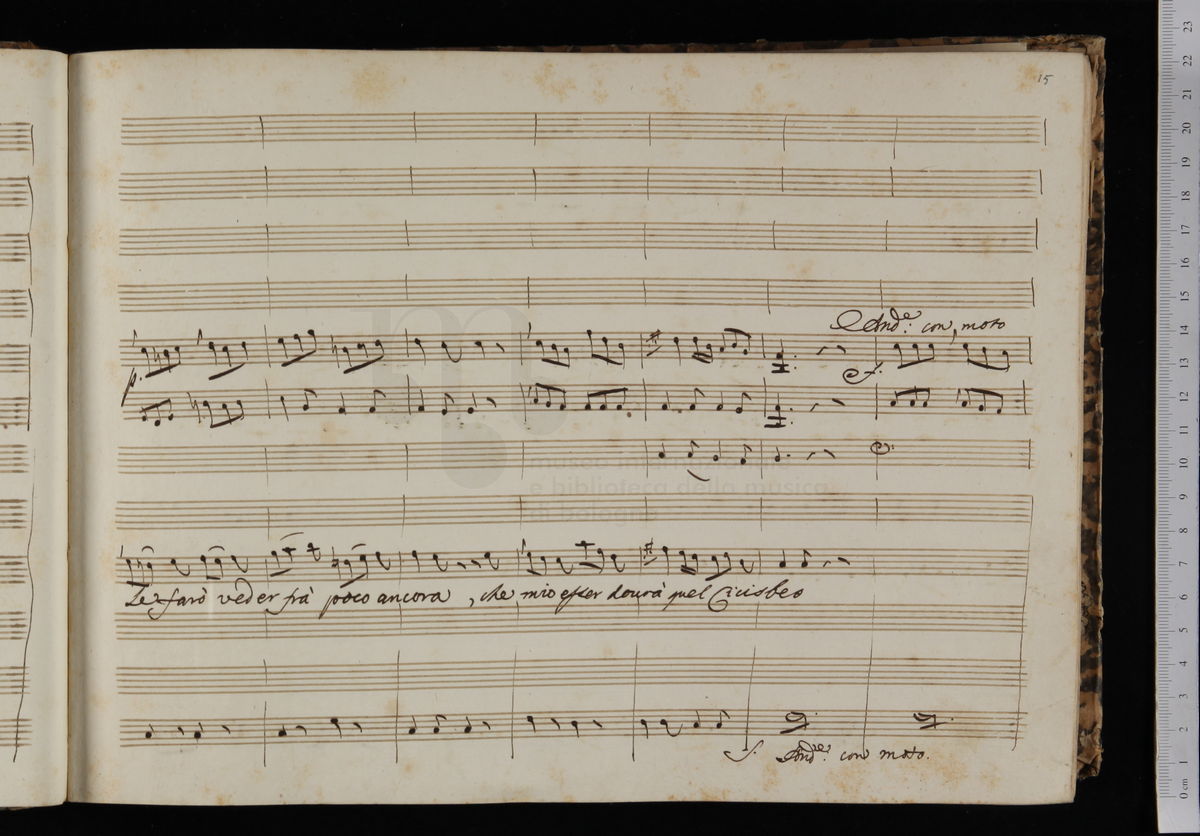 15
And.e con moto
p.
f.
Le farò veder frà poco ancora, che mio esser dourà quel Cicisbeo
f.
And.e con moto.
museo internazionale
e biblioteca della musica
di bologna
0 cm 1 2 3 4 5 6 7 8 9 10 11 12 13 14 15 16 17 18 19 20 21 22 23